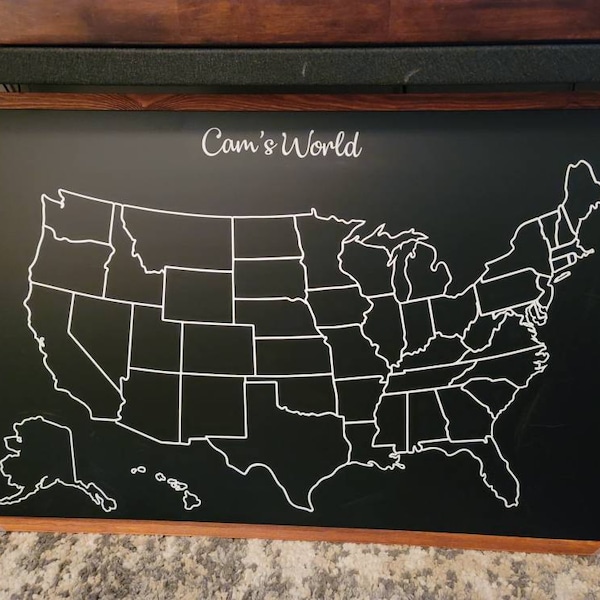 Cam's World